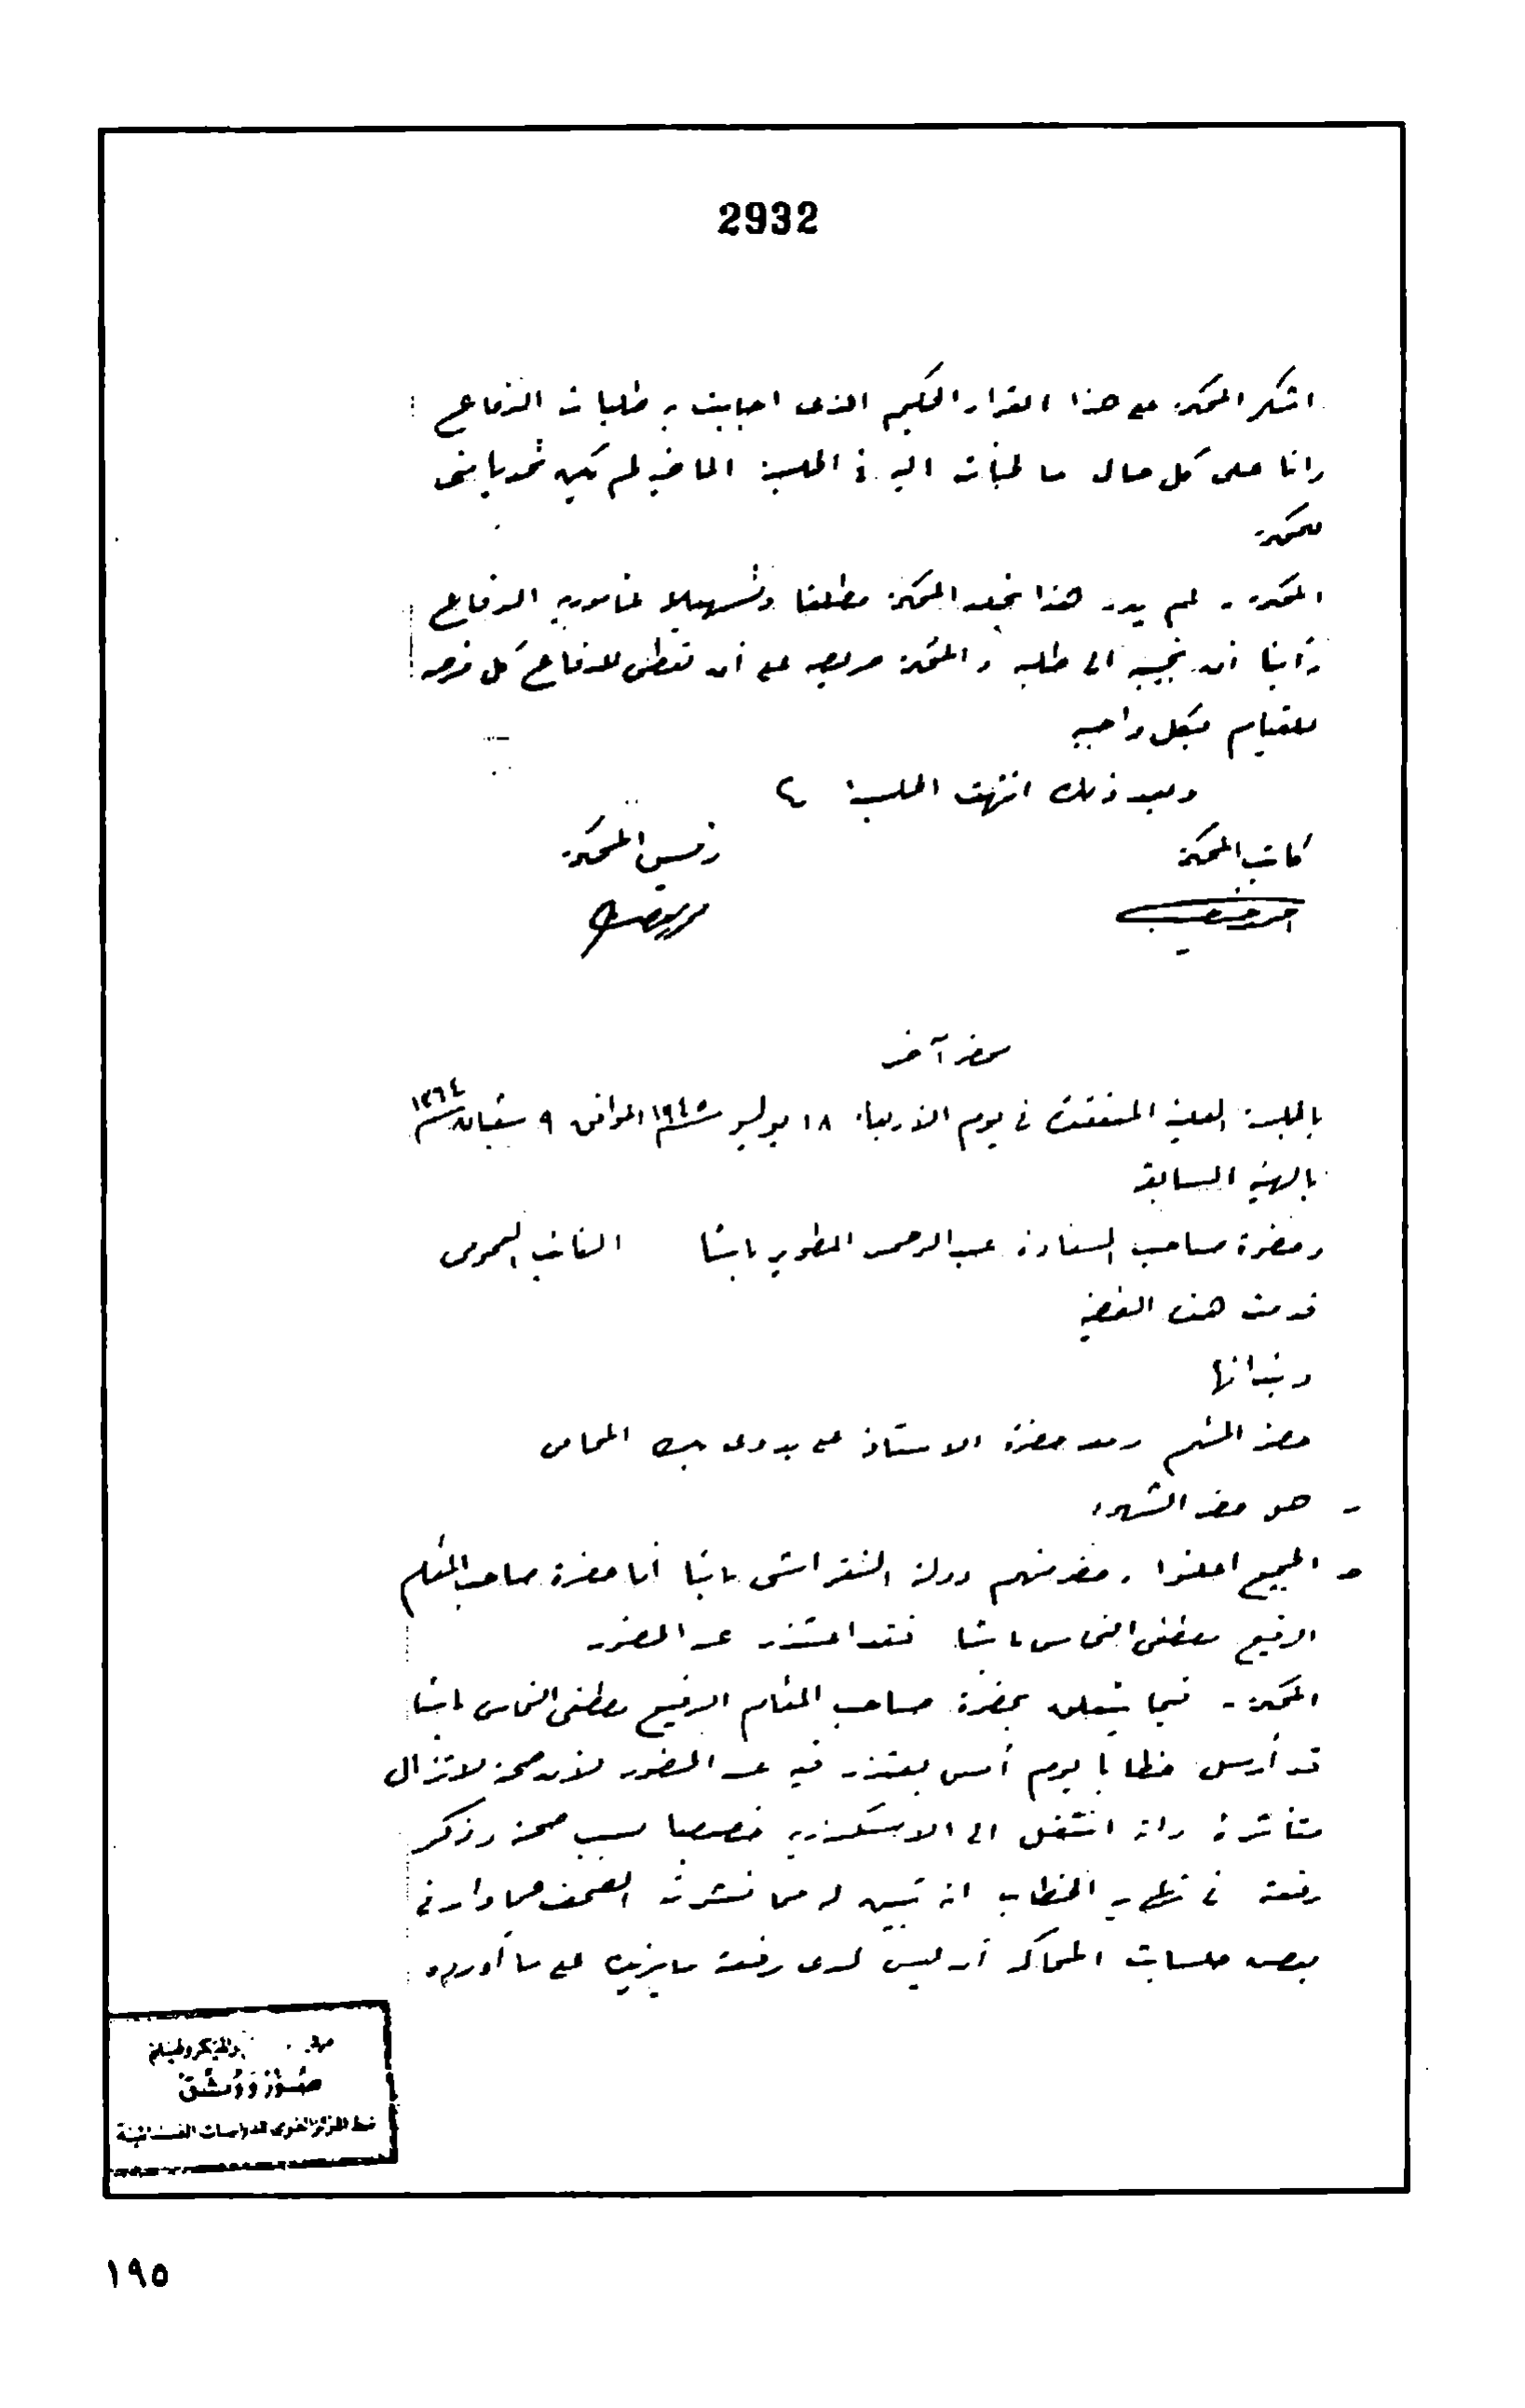 2932
اشكر المحكمة على هذا القرار الحكيم الذى اجابت به طلبات الدفاع
وانا على كل حال ما لجأت اليه فى الجلسة الماضية لم يكن تحديا منى
للمحكمة
المحكمة - لم يدر هذا بخلد المحكمة مطلقا وتسهيلا لمأمورية الدفاع
رأينا أن نجيبه الى طلبه والمحكمة حريصة على أن تعطى للدفاع كل فرصة
للقيام بكل واجبه
وبعد ذلك انتهت الجلسة
كاتب المحكمة رئيس المحكمة
محضر آخر
بالجلسة العلنية المنعقدة فى يوم الاربعاء ١٨ يوليو سنة ١٩٤٥ الموافق ٩ شعبان سنة ١٣٦٤
بالهيئة السابقة
وحضرة صاحب السعادة عبد الرحمن الطوير باشا النائب العمومى
قدمت هذه القضية
وبندائها
حضر المتهم ومعه حضرة الاستاذ على بدوى بك المحامى
- هل حضر الشهود
- الجميع اعلنوا وحضر منهم دولة النقراشى باشا أما حضرة صاحب المقام
الرفيع مصطفى النحاس باشا فقد اعتذر عن الحضور
المحكمة - فيما يتعلق بحضرة صاحب المقام الرفيع مصطفى النحاس باشا
قد أرسل خطابا يوم أمس يعتذر فيه عن الحضور لأن صحته لا تزال
متأثرة وانه انتقل الى الاسكندرية خصيصا بسبب صحته وذكر
رفعته فى الخطاب انه تبين له مما نشرته الصحف عما دار فى
بعض جلسات المحاكمة أن ليس لدى رفعته ما يزيده على ما أورده
والميكروفيلم
١٩٥